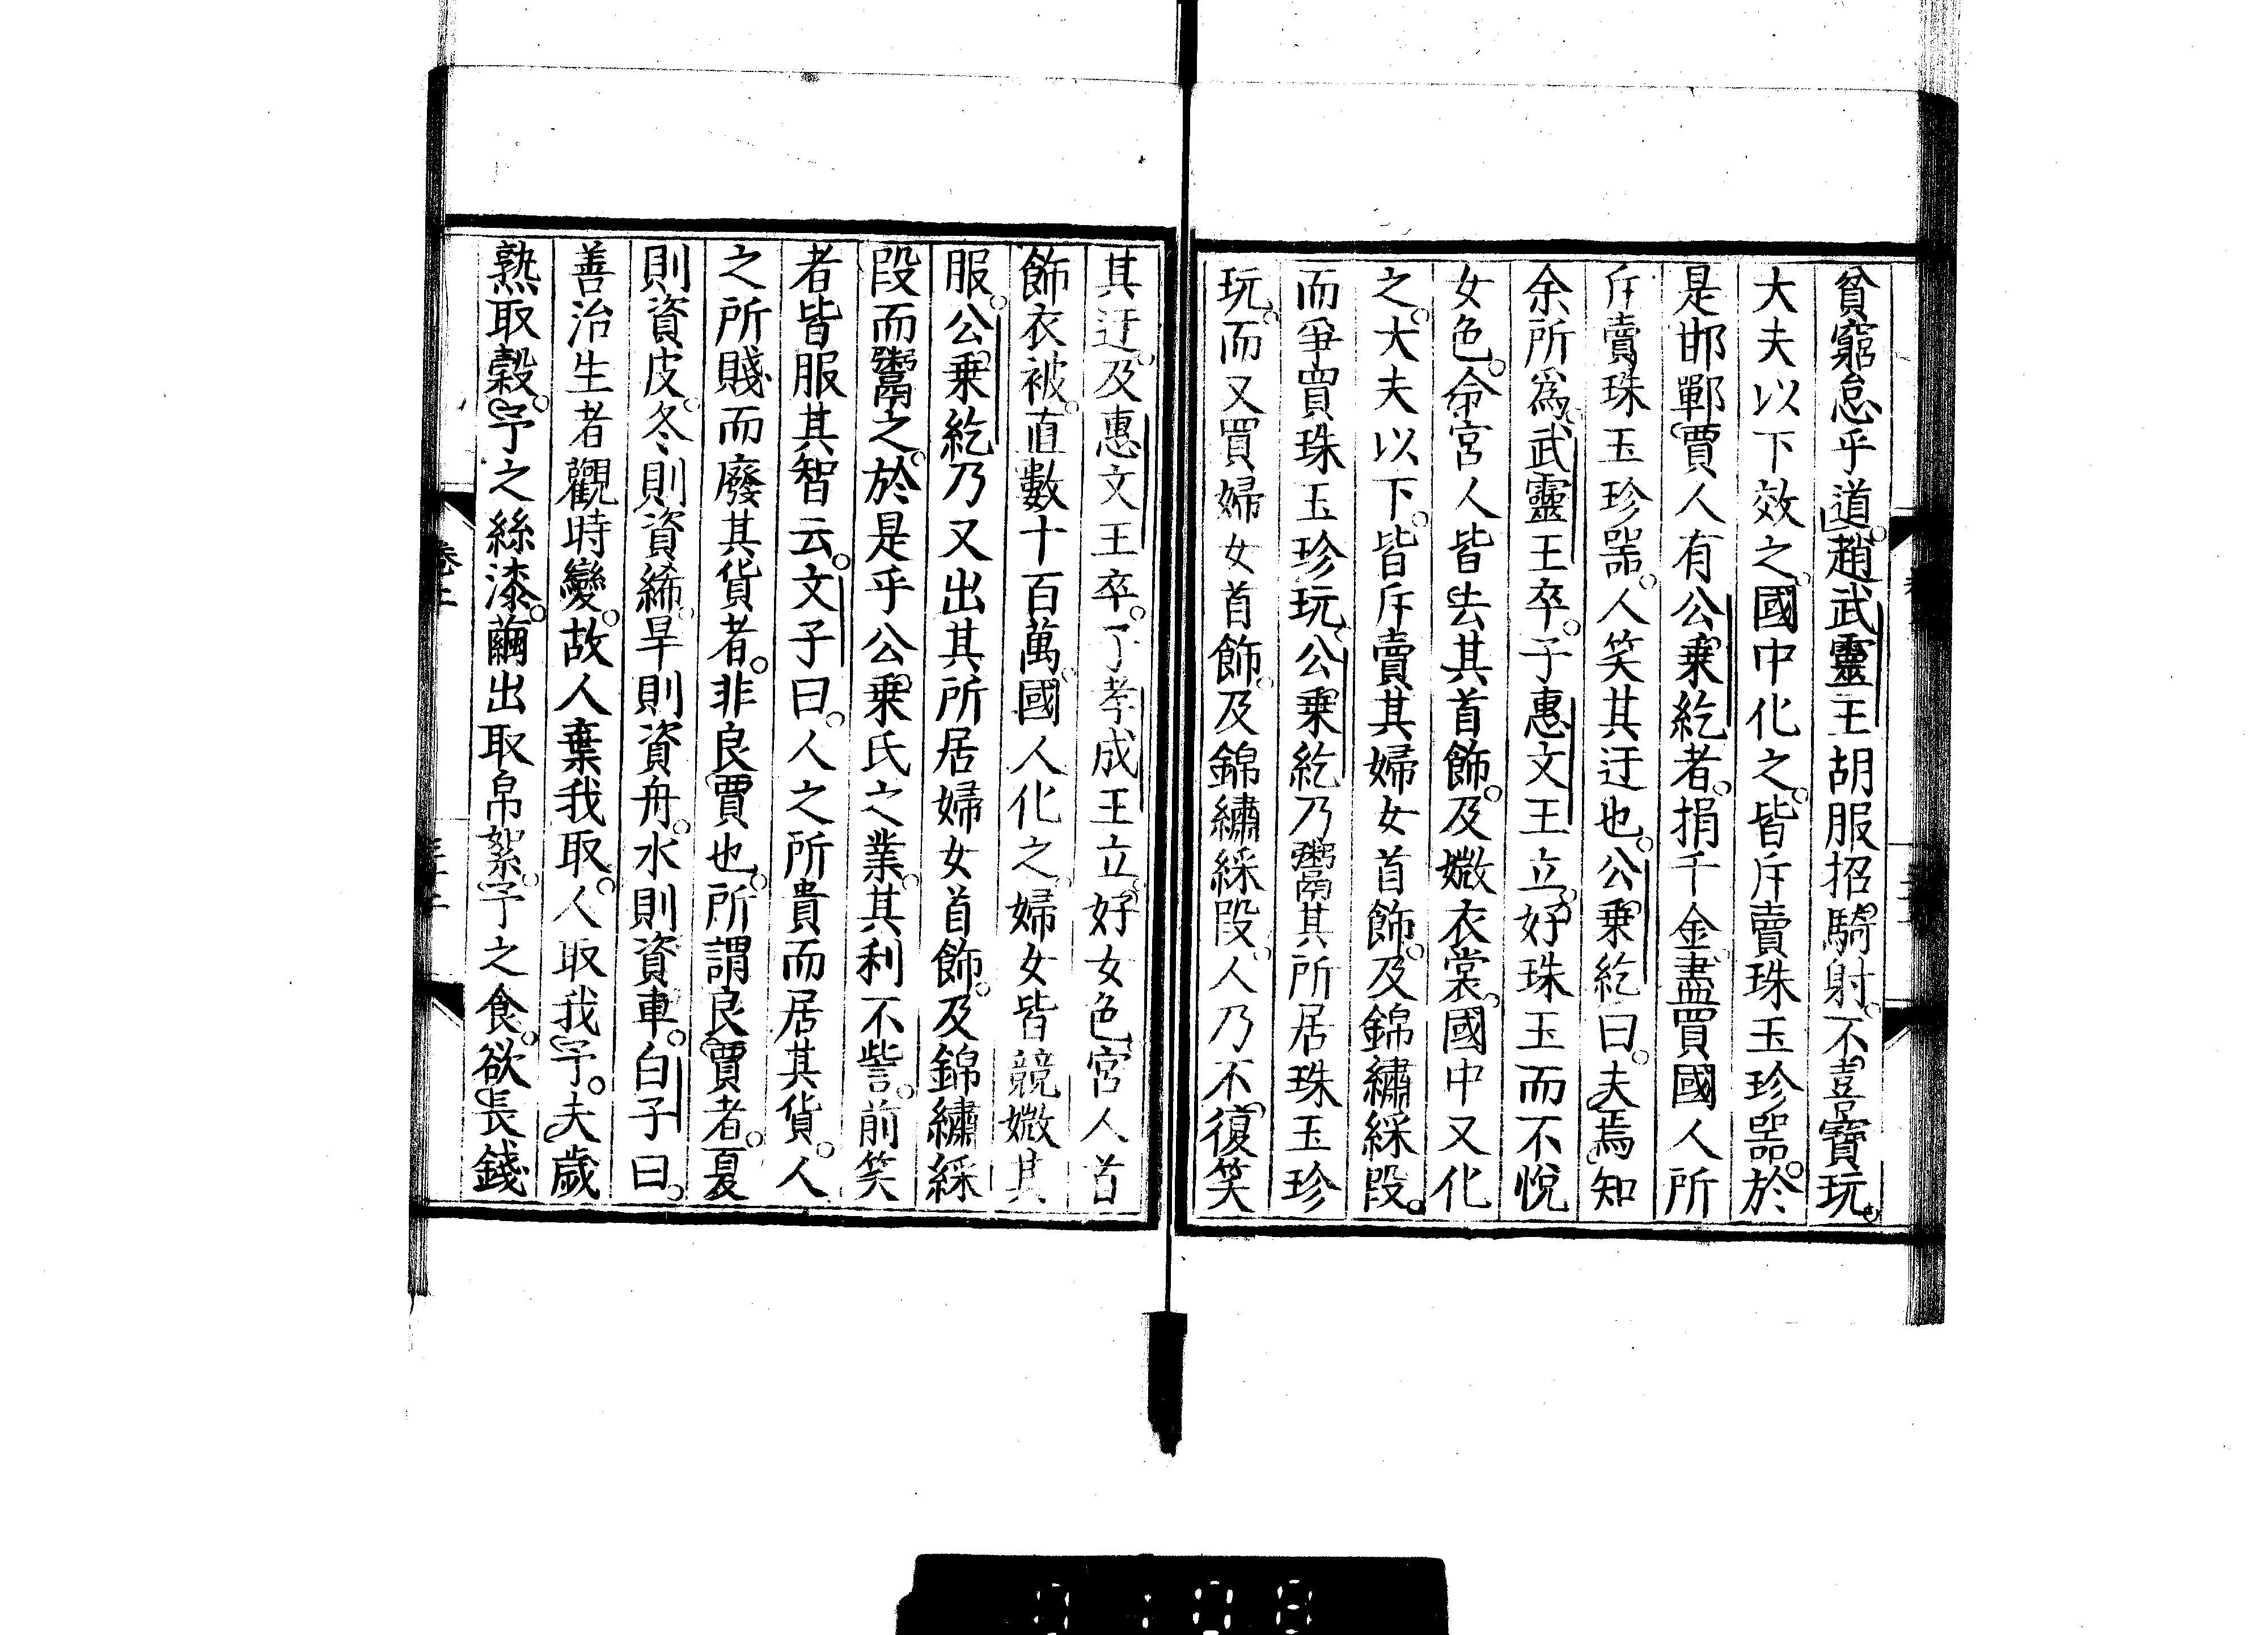 貧窮怠乎道。趙武靈王胡服招騎射。不喜寶玩。
大夫以下效之。國中化之。皆斥賣珠玉珍器。於
是邯鄲賈人有公乗紇者。捐千金盡買國人所
斥賣珠玉珍器。人笑其迂也。公乗紇曰。夫焉知
余所爲。武靈王卒。子惠文王立。好珠玉而不悅
女色。命宮人皆去其首飾。及媺衣裳。國中又化
之。大夫以下。皆斥賣其婦女首飾。及錦繡綵段。
而爭買珠玉珍玩。公乗紇乃鬻其所居珠玉珍
玩。而又買婦女首飾。及錦繡綵段。人乃不復笑
其迂。及惠文王卒。子孝成王立。好女色。宮人首
飾衣被。直數十百萬。國人化之。婦女皆競媺其
服。公乗紇乃又出其所居婦女首飾。及錦繡綵
段而鬻之。於是乎公乗氏之業。其利不訾。前笑
者皆服其智云。文子曰。人之所貴而居其貨。人
之所賤而廢其貨者。非良賈也。所謂良賈者。夏
則資皮。冬則資絺。旱則資舟。水則資車。白子曰。
善治生者觀時變。故人棄我取。人取我予。夫歲
熟取穀。予之絲漆。繭出取帛絮。予之食。欲長錢